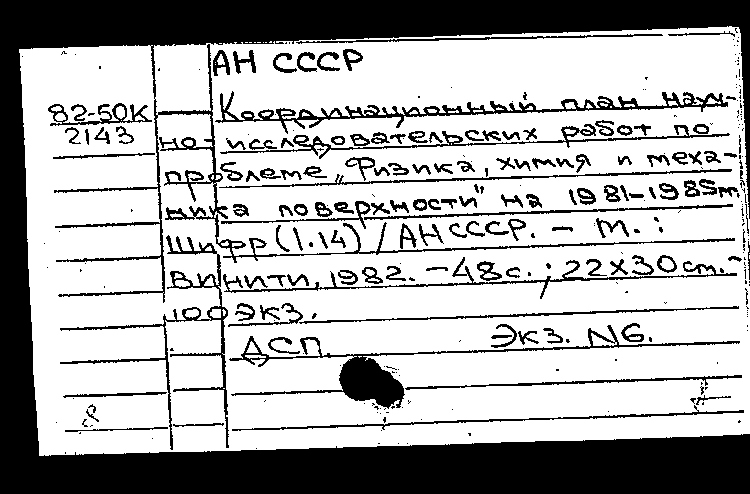 АН СССР
82-50К
2143
Координационный план науч-
но-исследовательских работ по
проблеме „Физика, химия и меха-
ника поверхности" на 1981-1985гг
Шифр (1.14) / АН СССР. - М. :
ВИНИТИ, 1982. - 48 с. ; 22х30 cm. -
100 экз.
ДСП. Экз. N6.
8